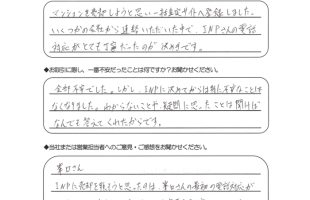 マンションを売却しようと思い一括査定サイトへ登録しました。
いくつかの会社から連絡いただいた中で、INPさんの電話
対応がとても丁寧だったのが決め手です。
◆お取引に際し、一番不安だったことは何ですか?お聞かせください。
全部不安でした。しかし、INPに決めてからは特に不安なことは
なくなりました。わからないことや疑問に思ったことは聞けば
なんでも答えてくれたからです。
◆当社または営業担当者へのご意見・ご感想をお聞かせください。
峯口さん
INPに売却を頼もうと思ったのは、峯口さんの最初の電話対応が